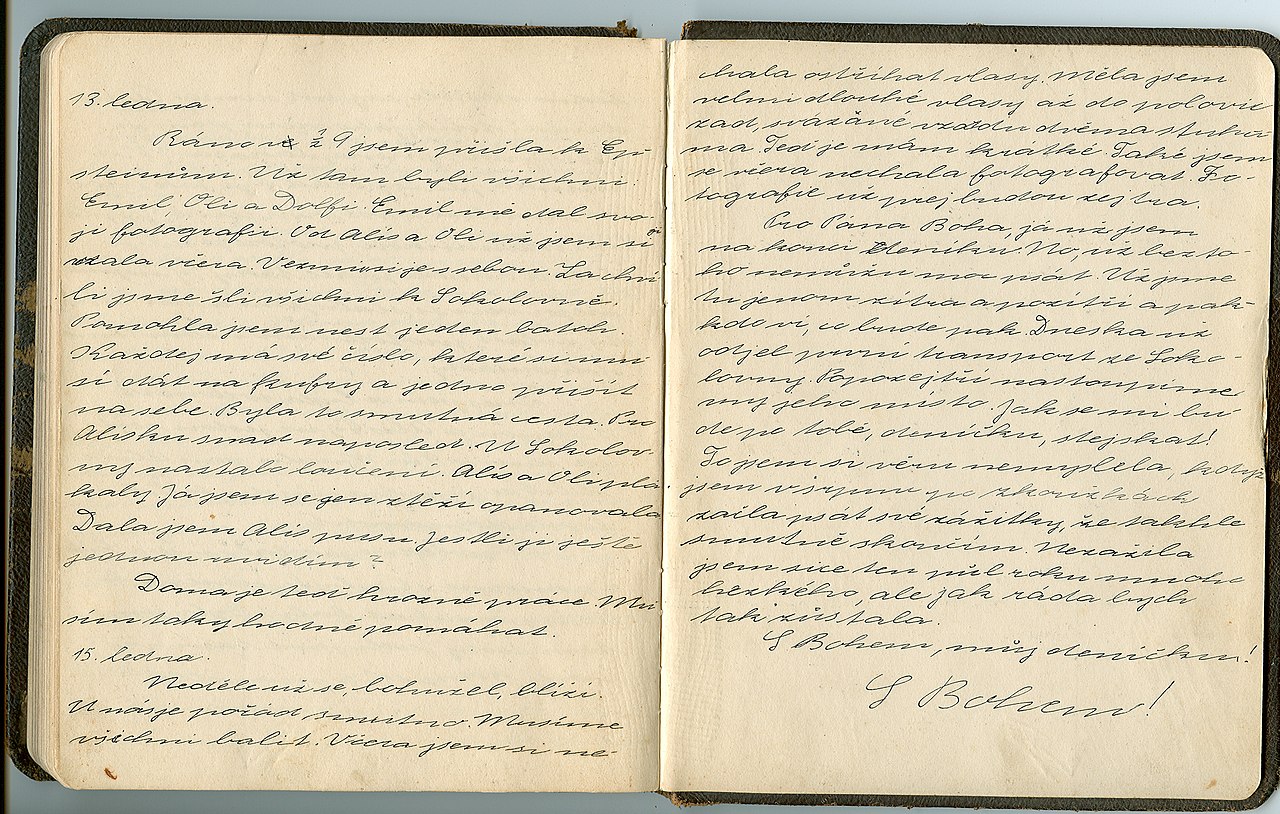 13. ledna.
Ráno v ¾ 9 jsem přišla k Ep-
steinům. Už tam byli všichni:
Emil, Oli a Dolfi. Emil mě dal svo-
ji fotografii. Od Alis a Oli už jsem si
vzala včera. Vezmu si je s sebou. Za chví-
li jsme šli všichni k Sokolovně.
Pomohla jsem nést jeden batoh.
Každej má své číslo, které si mu-
sí dát na kufry a jedno přišít
na sebe. Byla to smutná cesta. Pro
Alisku snad naposled. U Sokolov-
ny nastalo loučení. Alis a Oli pla-
kaly. Já jsem se jen ztěží opanovala
Dala jsem Alis pusu. Jestli ji ještě
jednou uvidím?
Doma je teď hrozně práce. Mu-
sím taky hodně pomáhat.
15. ledna.
Neděle už se, bohužel, blíží.
U nás je pořád smutno. Musíme
všichni balit. Včera jsem si ne-
chala ostříhat vlasy. Měla jsem
velmi dlouhé vlasy až do polovic
zad, svázané vzadu dvěma stuha-
ma. Teď je mám krátké. Také jsem
se včera nechala fotografovat. Fo-
tografie už prej budou zejtra.
Pro Pána Boha, já už jsem
na konci deníku. No, už bez to-
ho nemůžu moc psát. Už jsme
tu jenom zítra a pozítří a pak-
kdo ví, co bude pak. Dneska už
odjel první transport ze Soko-
lovny. Popozejtří nastoupíme
my jeho místo. Jak se mi bu-
de po tobě, deníčku, stejskat!
To jsem si věru nemyslela, když
jsem v srpnu po zkouškách
začla psát své zážitky, že takhle
smutně skončím. Nezažila
jsem sice ten půl roku mnoho
hezkého, ale jak ráda bych
tak zůstala.
S Bohem, můj deníčku!
S Bohem!